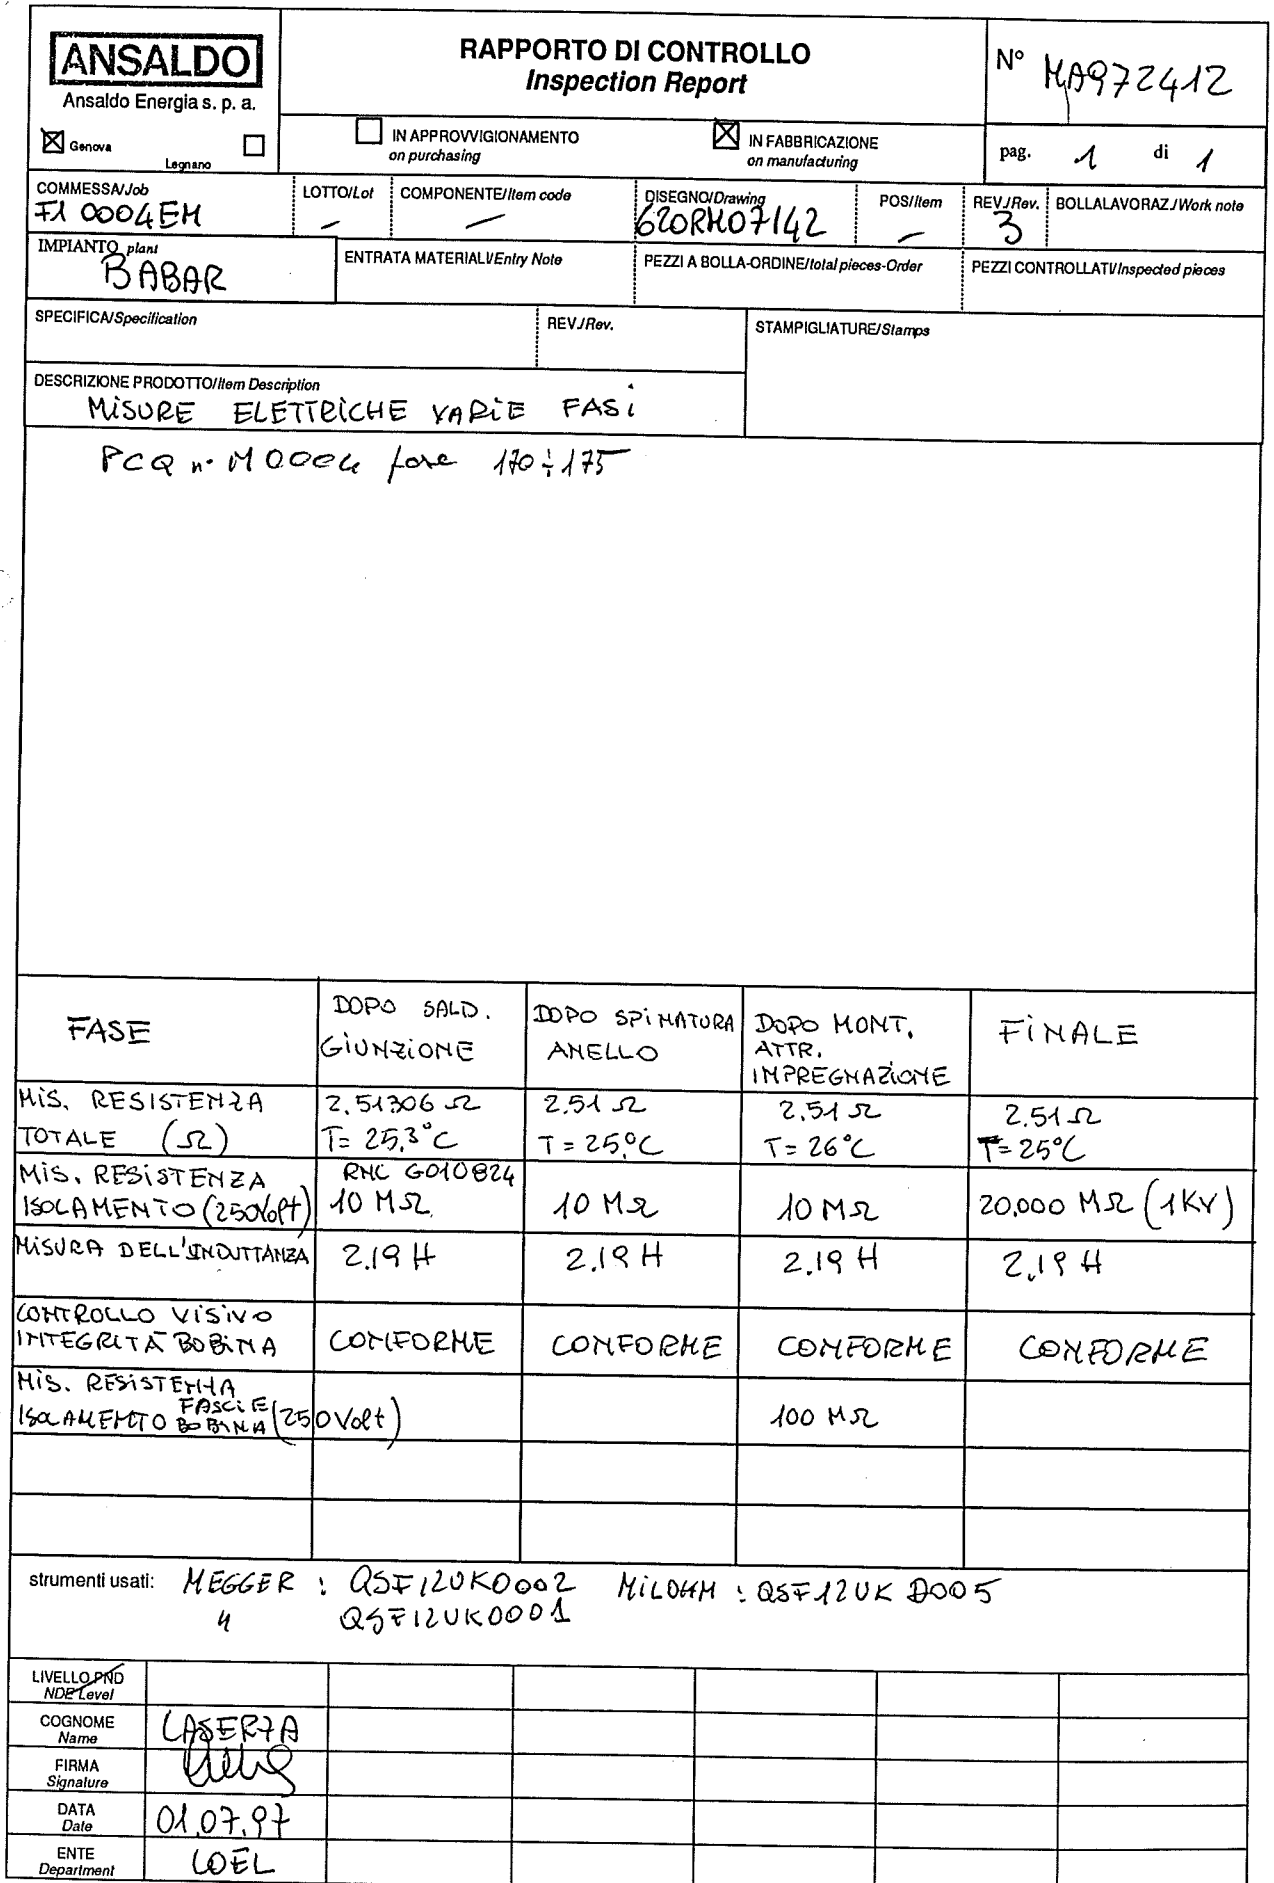 ANSALDO
Ansaldo Energia s. p. a.
Genova
Legnano
RAPPORTO DI CONTROLLO
Inspection Report
IN APPROVVIGIONAMENTO
on purchasing
IN FABBRICAZIONE
on manufacturing
N° MA972412
pag. 1 di 1
COMMESSA/Job
F1 0004EM
LOTTO/Lot
—
COMPONENTE/Item code
—
DISEGNO/Drawing
620RM07142
POS/Item
—
REV./Rev.
3
BOLLALAVORAZ./Work note
IMPIANTO plant
BABAR
ENTRATA MATERIALI/Entry Note
PEZZI A BOLLA-ORDINE/total pieces-Order
PEZZI CONTROLLATI/Inspected pieces
SPECIFICA/Specification
REV./Rev.
STAMPIGLIATURE/Stamps
DESCRIZIONE PRODOTTO/Item Description
MISURE ELETTRICHE VARIE FASI
PCQ n. M0004 fase 170÷175
FASE
DOPO SALD.
GIUNZIONE
DOPO SPINATURA
ANELLO
DOPO MONT.
ATTR.
IMPREGNAZIONE
FINALE
MIS. RESISTENZA
TOTALE (Ω)
2.51306 Ω
T= 25,3°C
2.51 Ω
T = 25°C
2.51 Ω
T = 26°C
2.51 Ω
T= 25°C
MIS. RESISTENZA
ISOLAMENTO (250Volt)
RNC G010824
10 MΩ
10 MΩ
10 MΩ
20.000 MΩ (1KV)
MISURA DELL'INDUTTANZA
2.19 H
2.19 H
2.19 H
2.19 H
CONTROLLO VISIVO
INTEGRITÀ BOBINA
CONFORME
CONFORME
CONFORME
CONFORME
MIS. RESISTENZA
ISOLAMENTO FASCIE BOBINA (250Volt)
100 MΩ
strumenti usati: MEGGER : QSF12UK0002 MILOHM : QSF12UK0005
" QSF12UK0001
LIVELLO PND
NDE Level
COGNOME
Name
CASERZA
FIRMA
Signature
DATA
Date
01.07.97
ENTE
Department
COEL